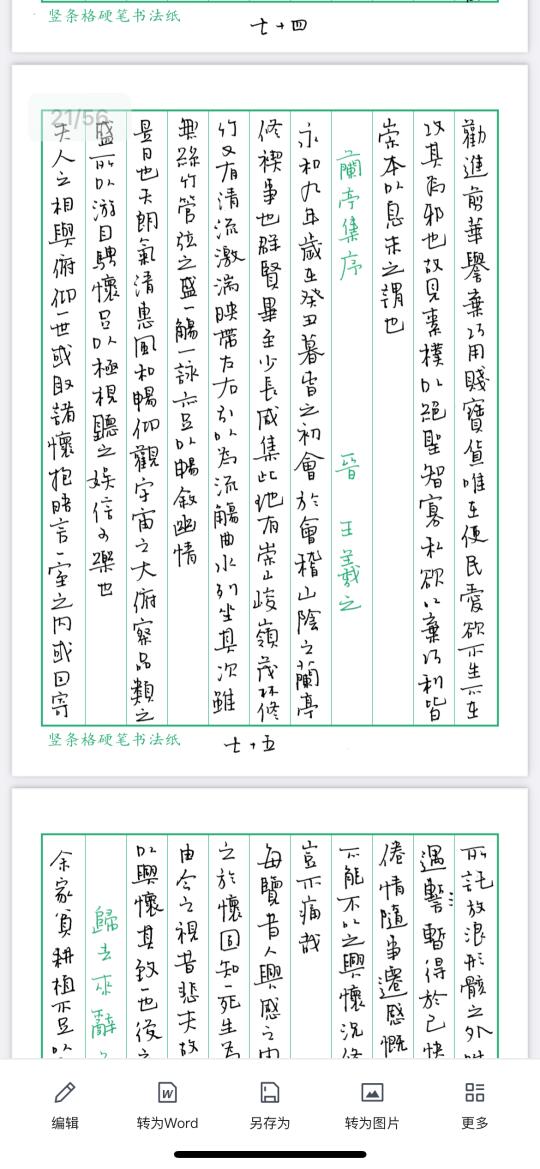 竖条格硬笔书法纸
七十四
21/56
勸進前華譽棄巧用賤寶貨唯在使民愛欲不生不在
攻其為邪也故見素樸以絕聖智寡私欲以棄巧利皆
崇本以息末之謂也
蘭亭集序 晉 王羲之
永和九年歲在癸丑暮春之初會於會稽山陰之蘭亭
修禊事也群賢畢至少長咸集此地有崇山峻嶺茂林修
竹又有清流激湍映帶左右引以為流觴曲水列坐其次雖
無絲竹管弦之盛一觴一詠亦足以暢敘幽情
是日也天朗氣清惠風和暢仰觀宇宙之大俯察品類之
盛所以游目騁懷足以極視聽之娛信可樂也
夫人之相與俯仰一世或取諸懷抱晤言一室之內或因寄
竖条格硬笔书法纸
七十五
所託放浪形骸之外
遇暫暫得於己快
倦情隨事遷感慨
不能不以之興懷況修
豈不痛哉
每覽昔人興感之由
之於懷固知一死生為
由今之視昔悲夫故
以興懷其致一也後之
歸去來辭
余家貧耕植不足以
编辑
转为Word
另存为
转为图片
更多